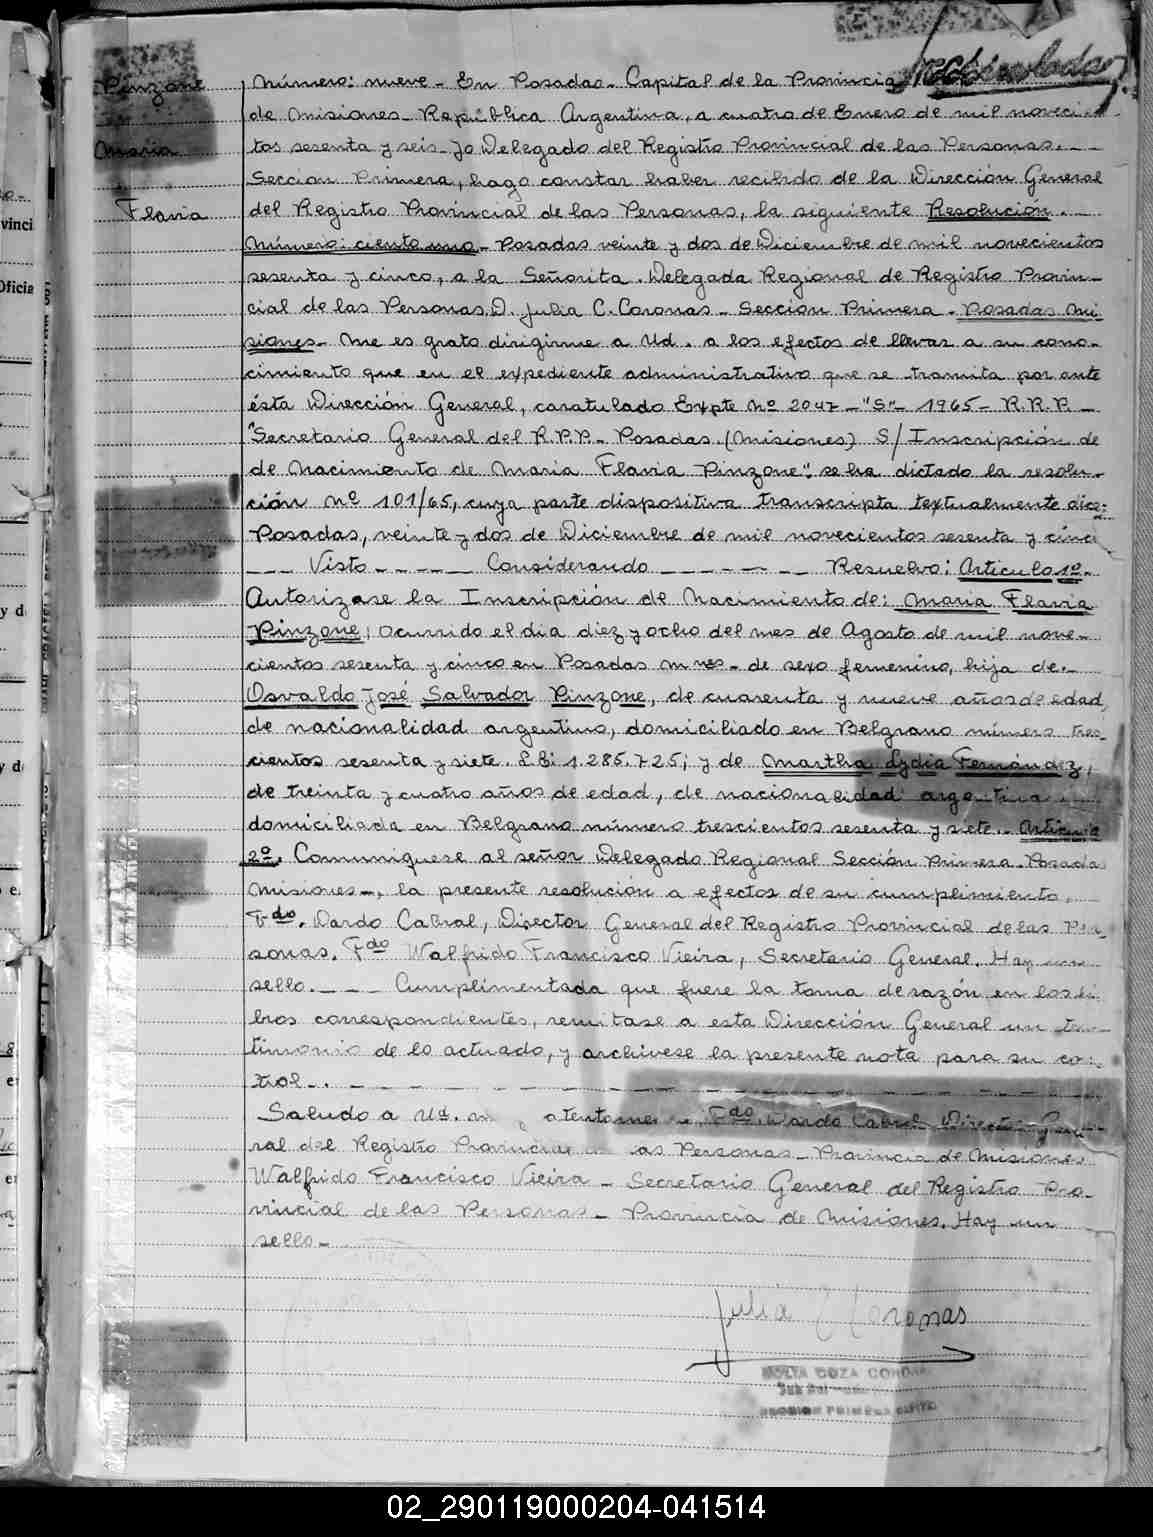 Pinzone
Maria
Flavia
Número: nueve - En Posadas - Capital de la Provincia
de Misiones - República Argentina, a cuatro de Enero de mil noveci..
tos sesenta y seis - Yo Delegado del Registro Provincial de las Personas. - -
Sección Primera, hago constar haber recibido de la Dirección General
del Registro Provincial de las Personas, la siguiente Resolución. -
Número: ciento uno - Posadas veinte y dos de Diciembre de mil novecientos
sesenta y cinco, a la Señorita. Delegada Regional de Registro Provin-
cial de las Personas. D. Julia C. Coronas - Sección Primera - Posadas Mi-
siones - Me es grato dirigirme a Ud. a los efectos de llevar a su cono-
cimiento que en el expediente administrativo que se tramita por ante
ésta Dirección General, caratulado Expte Nº 2047 - "S" - 1965 - R.R.P. -
"Secretario General del R.P.P. - Posadas. (Misiones) S/ Inscripción de
de Nacimiento de Maria Flavia Pinzone": se ha dictado la resolu-
ción Nº 101/65, cuya parte dispositiva transcripta textualmente dice:
Posadas, veinte y dos de Diciembre de mil novecientos sesenta y cinco
- - - Visto - - - - - Considerando - - - - - - - Resuelvo: Artículo 1º -
Autorizase la Inscripción de Nacimiento de: Maria Flavia
Pinzone; ocurrido el día diez y ocho del mes de Agosto de mil nove-
cientos sesenta y cinco en Posadas Mnes - de sexo femenino, hija de. -
Osvaldo José Salvador Pinzone, de cuarenta y nueve años de edad,
de nacionalidad argentino, domiciliado en Belgrano número tres-
cientos sesenta y siete. L.E: 1.285.725; y de Martha Lydia Fernández,
de treinta y cuatro años de edad, de nacionalidad argentina
domiciliada en Belgrano número trescientos sesenta y siete. - Artículo
2º. Comuníquese al señor Delegado Regional Sección Primera. Posadas
Misiones -, la presente resolución a efectos de su cumplimiento.
Fdo. Dardo Cabral, Director General del Registro Provincial de las Per-
sonas. Fdo Walfrido Francisco Vieira, Secretario General. Hay un
sello. - - - Cumplimentada que fuere la toma de razón en los li-
bros correspondientes, remítase a esta Dirección General un tes-
timonio de lo actuado, y archívese la presente nota para su co:
trol - . - - - - - - - - - -
Saludo a Ud. atentame Fdo. Dardo Cabral Director Gene-
ral del Registro Provincial de las Personas - Provincia de Misiones
Walfrido Francisco Vieira - Secretario General del Registro Pro-
vincial de las Personas - Provincia de Misiones. Hay un
sello -
Julia C Coronas
SECCION PRIMERA
02_290119000204-041514